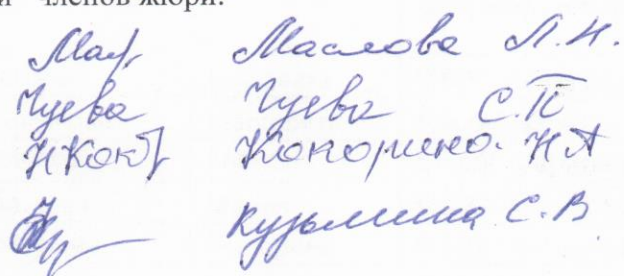 членов жюри:
Маслова Л.Н.
Чуева Чуева С.П
НКок Кокорина НА
Кузьмина С.В